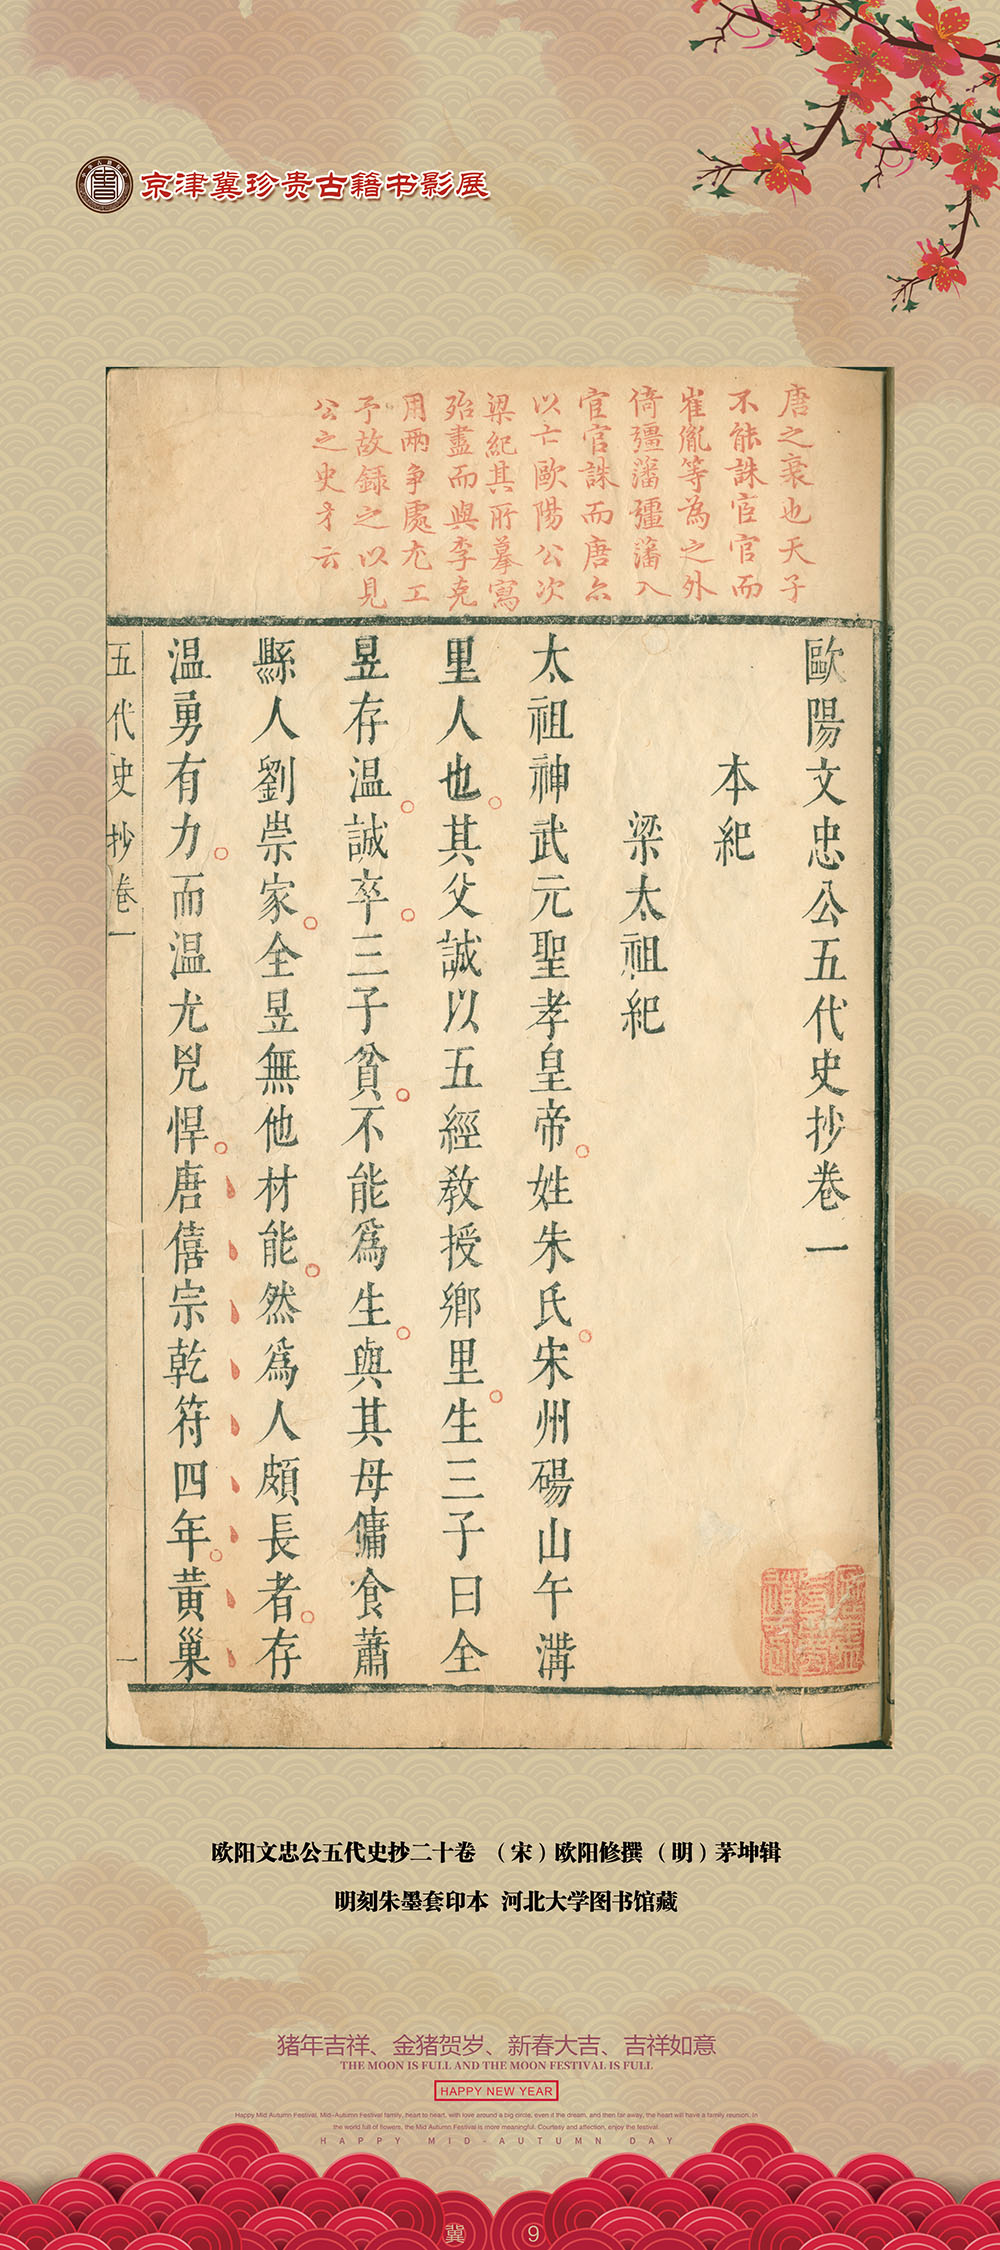 京津冀珍贵古籍书影展
唐之衰也天子
不能誅宦官而
崔胤等為之外
倚彊藩彊藩入
宦官誅而唐亦
以亡歐陽公次
梁紀其所摹寫
殆盡而與李克
用兩爭處尤工
予故録之以見
公之史才云
歐陽文忠公五代史抄卷一
本紀
梁太祖紀
太祖神武元聖孝皇帝姓朱氏宋州碭山午溝
里人也其父誠以五經敎授鄉里生三子曰全
昱存温誠卒三子貧不能爲生與其母傭食蕭
縣人劉崇家全昱無他材能然爲人頗長者存
温勇有力而温尤兇悍唐僖宗乾符四年黃巢
五代史抄卷一
一
欧阳文忠公五代史抄二十卷 （宋）欧阳修撰（明）茅坤辑
明刻朱墨套印本 河北大学图书馆藏
猪年吉祥、金猪贺岁、新春大吉、吉祥如意
THE MOON IS FULL AND THE MOON FESTIVAL IS FULL
HAPPY NEW YEAR
Happy Mid Autumn Festival, Mid-Autumn Festival family, heart to heart, with love around a big circle, even if the dream, and then far away, the heart will have a family reunion. In
the world full of flowers, the Mid Autumn Festival is more meaningful. Courtesy and affection, enjoy the festival.
HAPPY MID-AUTUMN DAY
冀 9